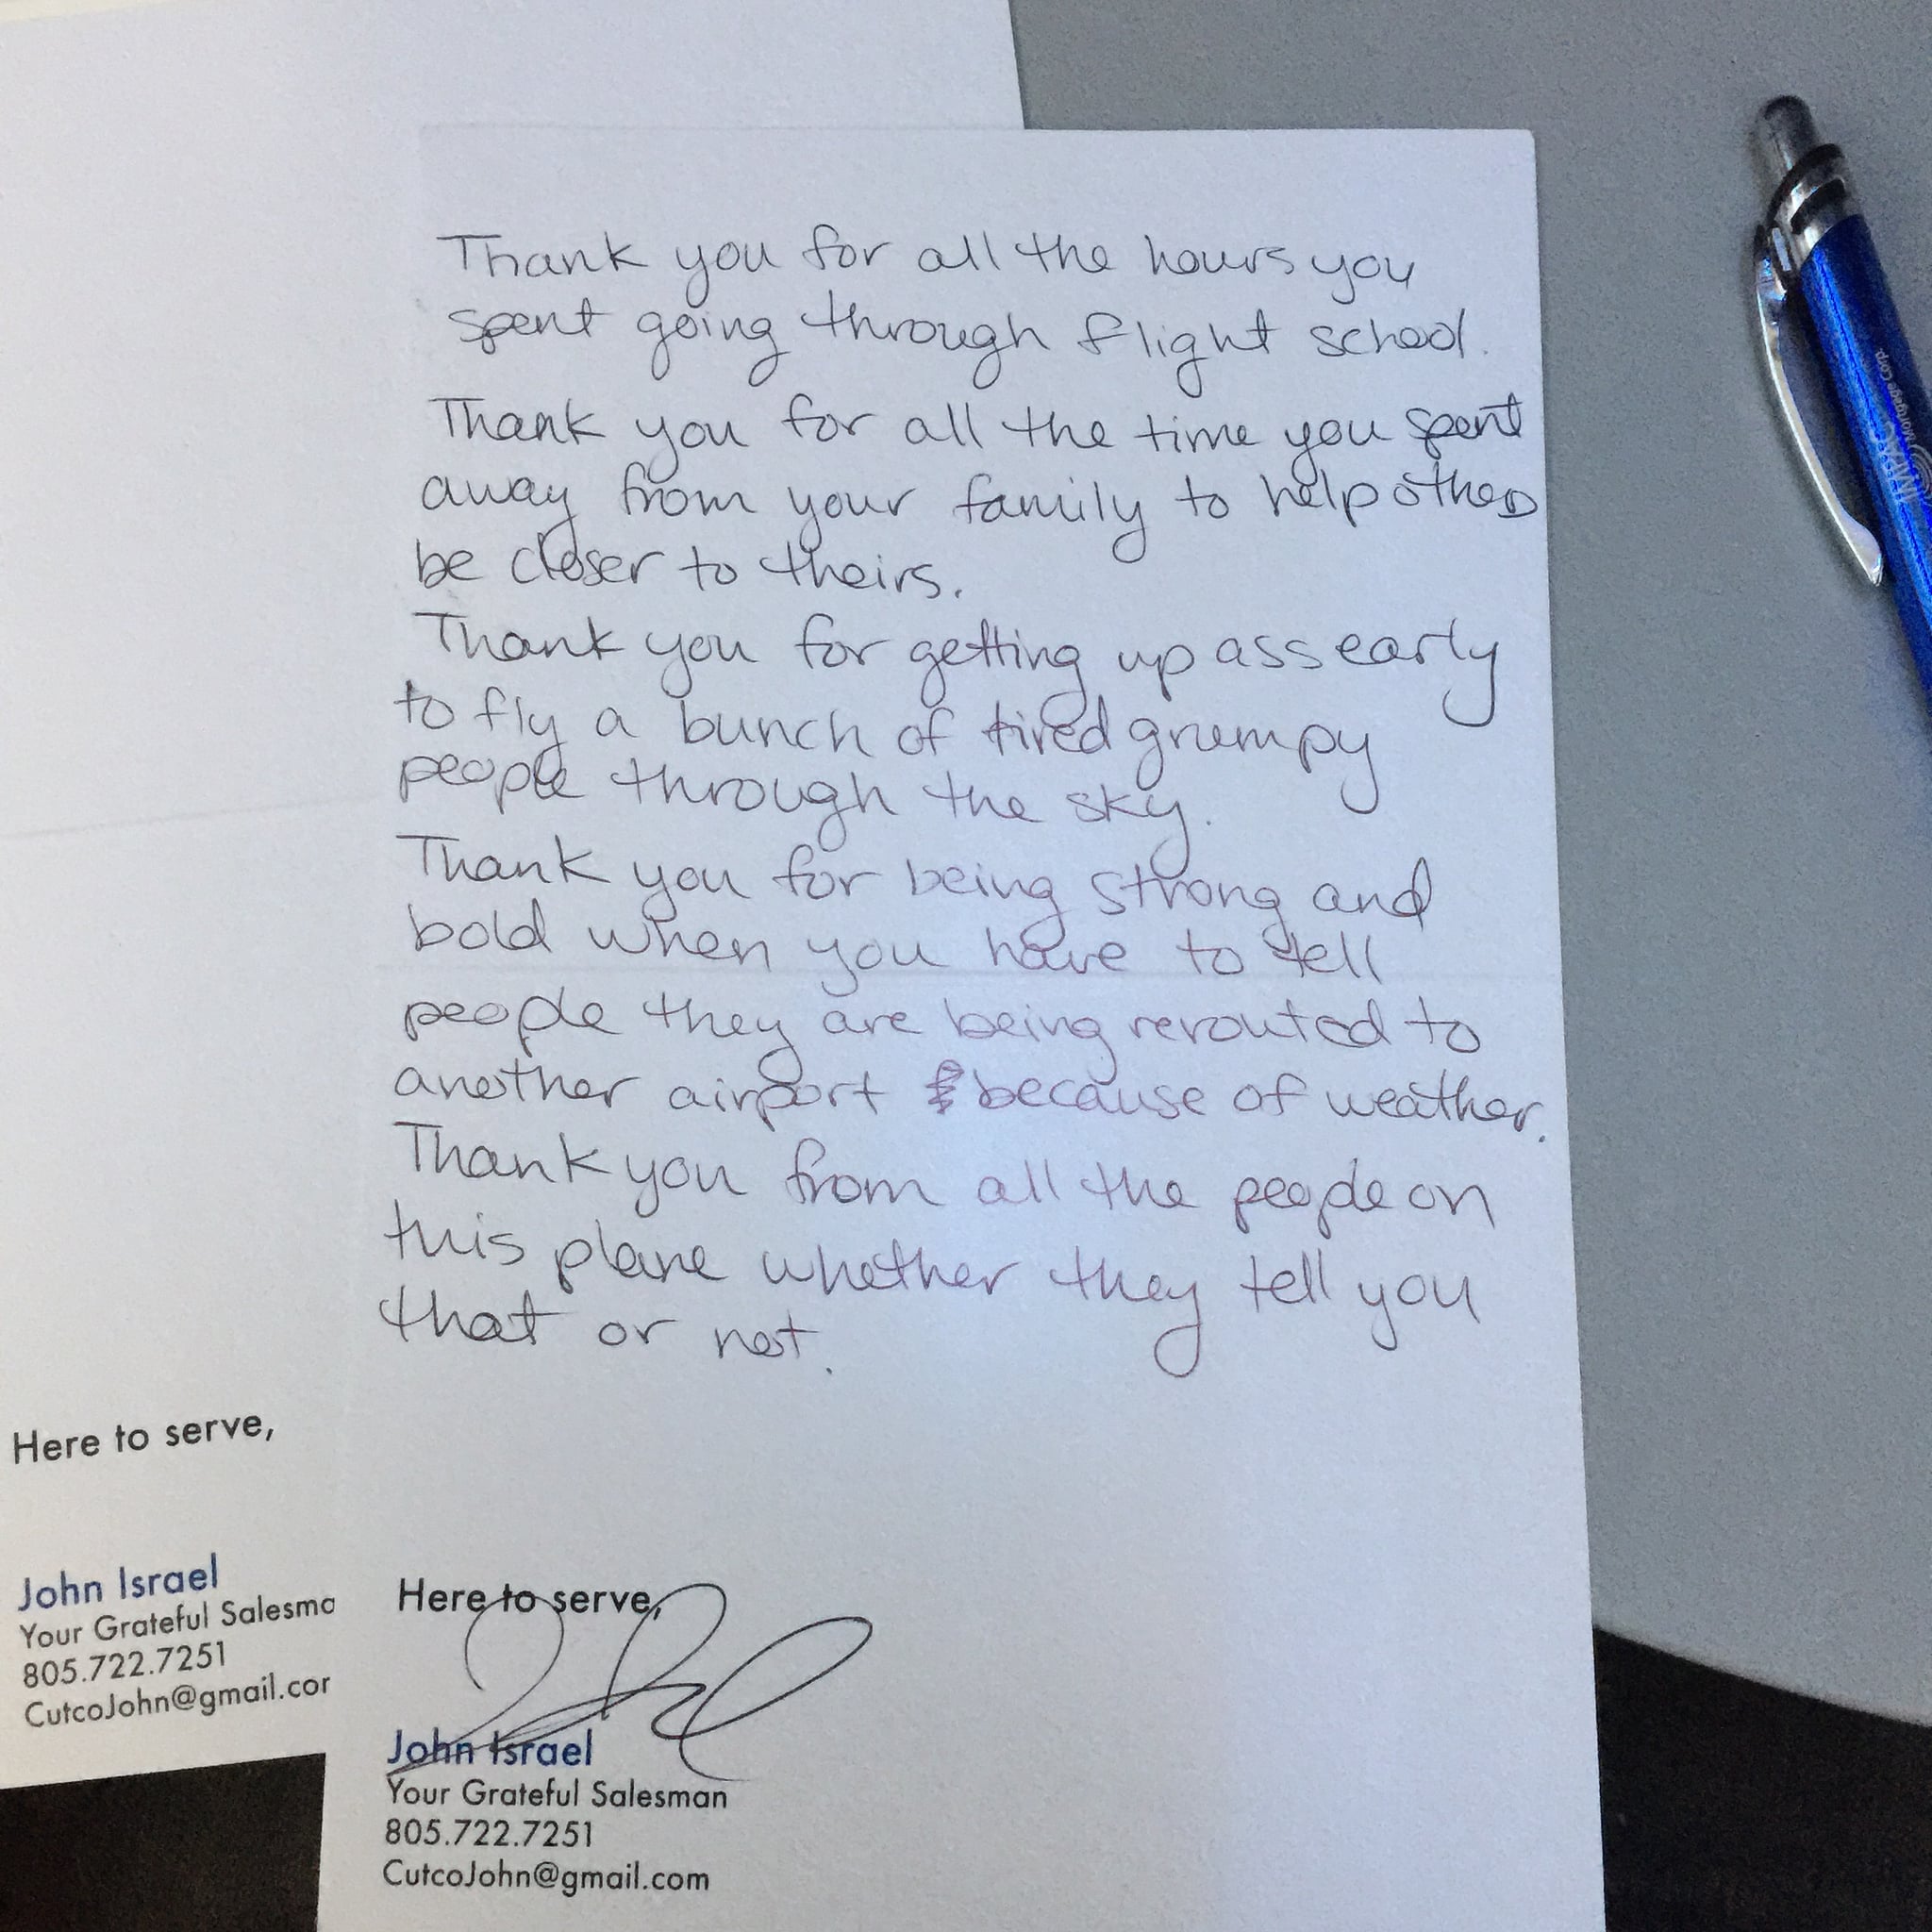 Thank you for all the hours you
spent going through flight school.
Thank you for all the time you spent
away from your family to help others
be closer to theirs.
Thank you for getting up ass early
to fly a bunch of tired grumpy
people through the sky.
Thank you for being strong and
bold when you have to tell
people they are being rerouted to
another airport because of weather.
Thank you from all the people on
this plane whether they tell you
that or not.
Here to serve,
John Israel
Your Grateful Salesman
805.722.7251
CutcoJohn@gmail.com
Here to serve,
John Israel
Your Grateful Salesma
805.722.7251
CutcoJohn@gmail.cor
Mortgage Corp.